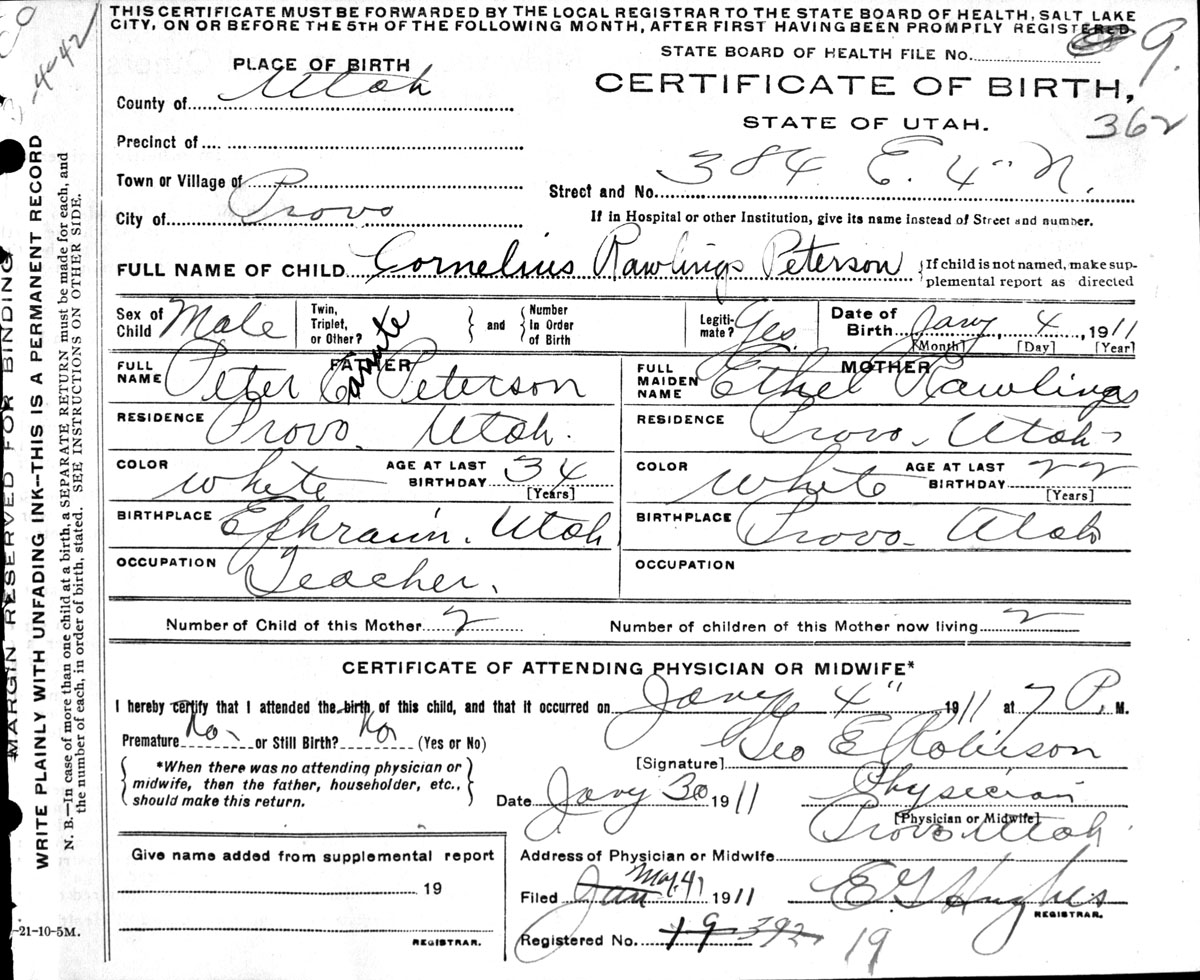 THIS CERTIFICATE MUST BE FORWARDED BY THE LOCAL REGISTRAR TO THE STATE BOARD OF HEALTH, SALT LAKE
CITY, ON OR BEFORE THE 5TH OF THE FOLLOWING MONTH, AFTER FIRST HAVING BEEN PROMPTLY REGISTERED.
STATE BOARD OF HEALTH FILE No. 9.
PLACE OF BIRTH
CERTIFICATE OF BIRTH,
County of Utah
STATE OF UTAH.
362
Precinct of
Town or Village of
Street and No. 384 E. 4" N.
City of Provo
If in Hospital or other Institution, give its name instead of Street and number.
FULL NAME OF CHILD Cornelius Rawlings Peterson {If child is not named, make sup-
plemental report as directed
Sex of Child Male
Twin, Triplet, or Other? } and { Number In Order of Birth
Legiti-mate? Yes.
Date of Birth Jany 4, 1911
[Month] [Day] [Year]
FATHER
MOTHER
FULL NAME Peter C Peterson
FULL MAIDEN NAME Ethel Rawlings
RESIDENCE Provo. Utah.
RESIDENCE Provo. Utah
COLOR white AGE AT LAST BIRTHDAY 34 [Years]
COLOR white AGE AT LAST BIRTHDAY 22 [Years]
BIRTHPLACE Ephraim. Utah
BIRTHPLACE Provo. Utah
OCCUPATION Teacher.
OCCUPATION
Number of Child of this Mother 2
Number of children of this Mother now living 2
CERTIFICATE OF ATTENDING PHYSICIAN OR MIDWIFE*
I hereby certify that I attended the birth of this child, and that it occurred on Jany 4" 1911 at 7 P. M.
Premature No. or Still Birth? No (Yes or No)
[Signature] Geo E Robison
*When there was no attending physician or
midwife, then the father, householder, etc.,
should make this return.
Date Jany 30 1911
Physician
[Physician or Midwife]
Provo Utah
Give name added from supplemental report
Address of Physician or Midwife
19
Filed Jan Mar. 4, 1911
E G Hughes
REGISTRAR.
REGISTRAR.
Registered No. 19 392 19
-21-10-5M.
MARGIN RESERVED FOR BINDING
WRITE PLAINLY WITH UNFADING INK—THIS IS A PERMANENT RECORD
N. B.—In case of more than one child at a birth, a SEPARATE RETURN must be made for each, and
the number of each, in order of birth, stated. SEE INSTRUCTIONS ON OTHER SIDE.